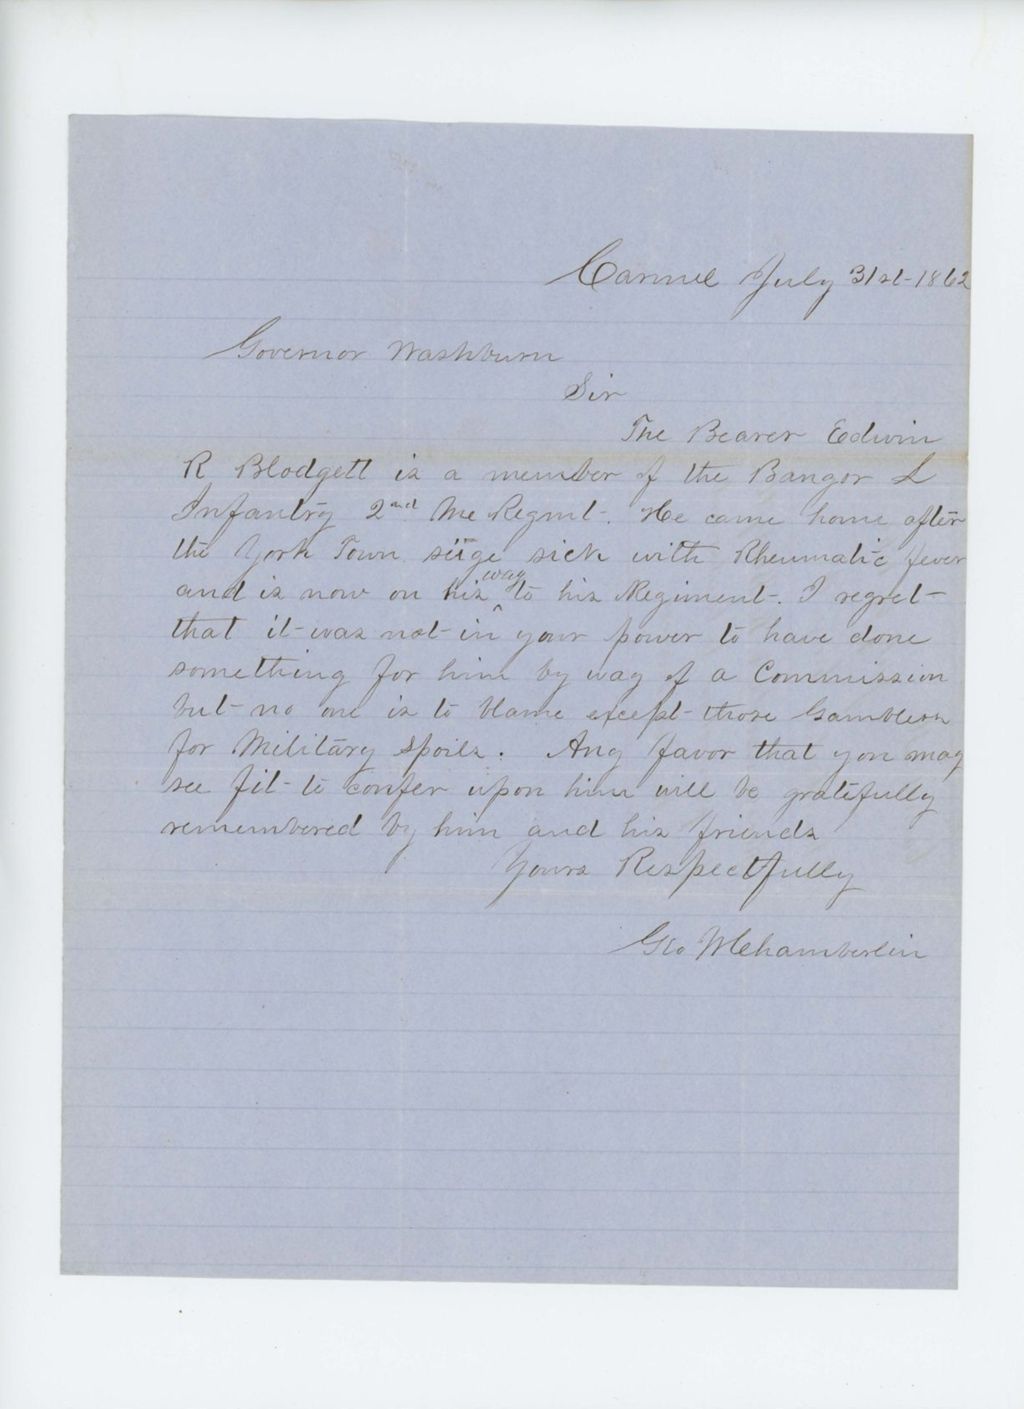 Carmel July 31st-1862
Governor Washburn
Sir
The Bearer Edwin
R Blodgett is a member of the Bangor L
Infantry 2nd Me Regmt. He came home after
the York Town siege sick with Rheumatic fever
and is now on his way to his Regiment. I regret
that it was not in your power to have done
something for him by way of a Commission
but no one is to blame except those Gamblers
for Military Spoils. Any favor that you may
see fit to confer upon him will be gratefully
remembered by him and his friends
Yours Respectfully
Geo W Chamberlin